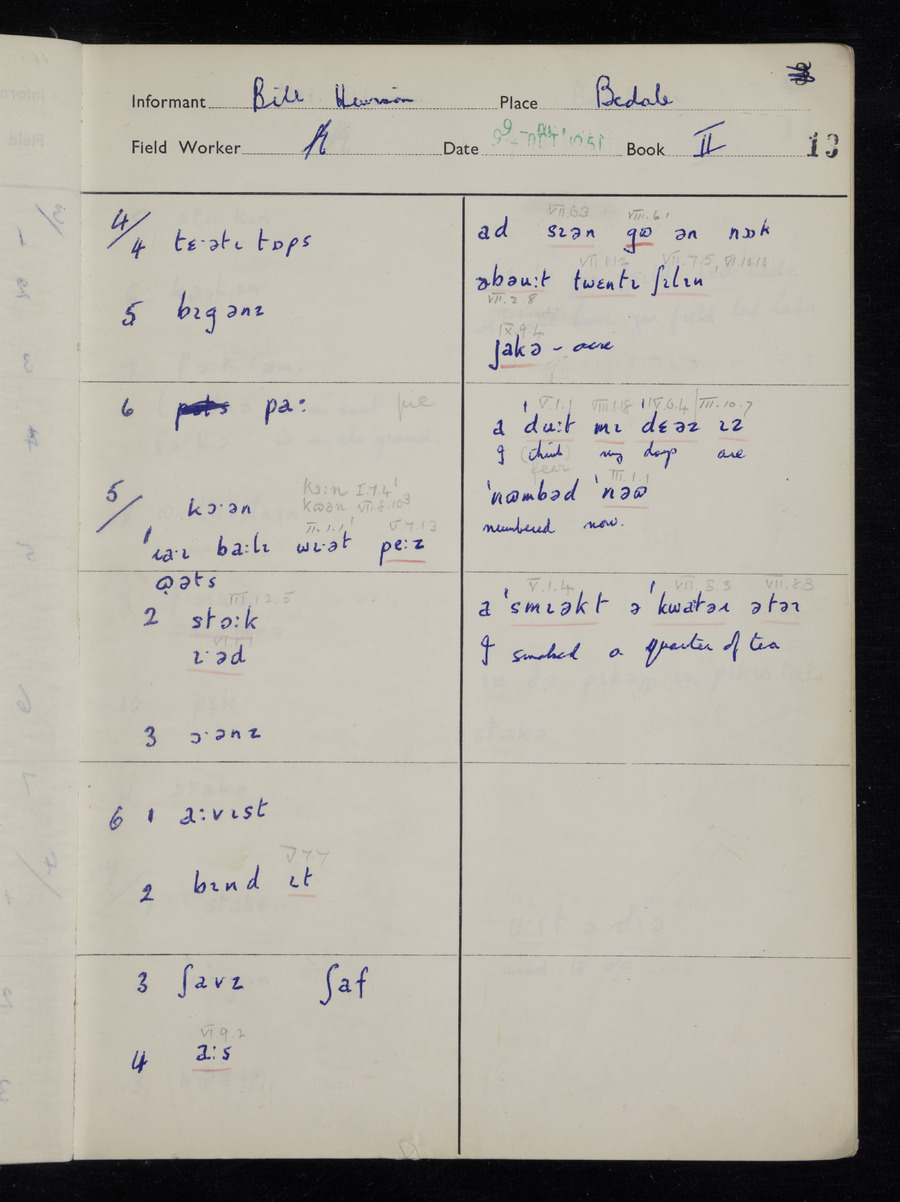 Informant Bill Place Bedale
Field Worker Date Book II 13
4/4 tɛ·ətɪ tɒps
5 bɪgənz
6 pa: pie
5/ kɔ·ən kɔ:n I.7.4 kʊən VII.8.10
II.1.1 V.7.13
ba:lɪ wɪ·ət pe:z
ʊəts
III.12.5
2 stɔ:k
ɪ·əd
3 ɔ·ənz
6 1 a:vɪst
V.7.7
2 bɪnd ɪt
3 ʃavz ʃaf
VI.9.2
4 a:s
VII.6.3 VIII.6.1
ad sɪən gʊ ən nɒk
VII.1.12 VII.7.5, VI.10.10
əbəu:t twɛntɪ ʃɪlɪn
VII.2.8
IX.9.4
ʃakə -
V.1.1 VIII.1.8 IV.6.4 III.10.7
a ˈdu:t mɪ dɛəz ɪz
I think my days are
(fear)
III.1.1
ˈnʊmbəd ˈnəʊ
numbered now.
V.1.4 VII.5.3 VII.8.3
a ˈsmɪəkt ə ˈkwatəɹ ətəɪ
I smoked a quarter of tea